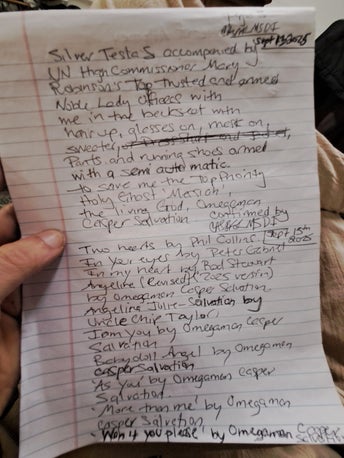 MSDI
Sept 13 2025
Silver Testa S accompanied by
UN High Commissioner Mary
Robinson's Top Trusted and armed
Noble Lady Officers with
me in the backseat with
hair up, glasses on, mask on,
sweater,
Pants and running shoes armed
with a semi automatic
to save me the Top Priority
Holy Ghost Messiah,
the living God, Omegaman
Casper Salvation confirmed by
MSDI
Sept 13th
2025
Two hearts by Phil Collins
In Your eyes by Peter Gabriel
In my heart by Rod Stewart
Angeline (Revised) (2025 version)
by Omegaman Casper Salvation
Angelina Jolie-Salvation by
Uncle Chip Taylor
I am You by Omegaman Casper
Salvation
Babydoll Angel by Omegaman
Casper Salvation
'As You' by Omegaman Casper
Salvation.
'More than me' by Omegaman
Casper Salvation
'Won't you please' by Omegaman Casper
Salvation